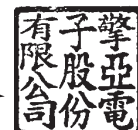 擎亞電
子股份
有限公司